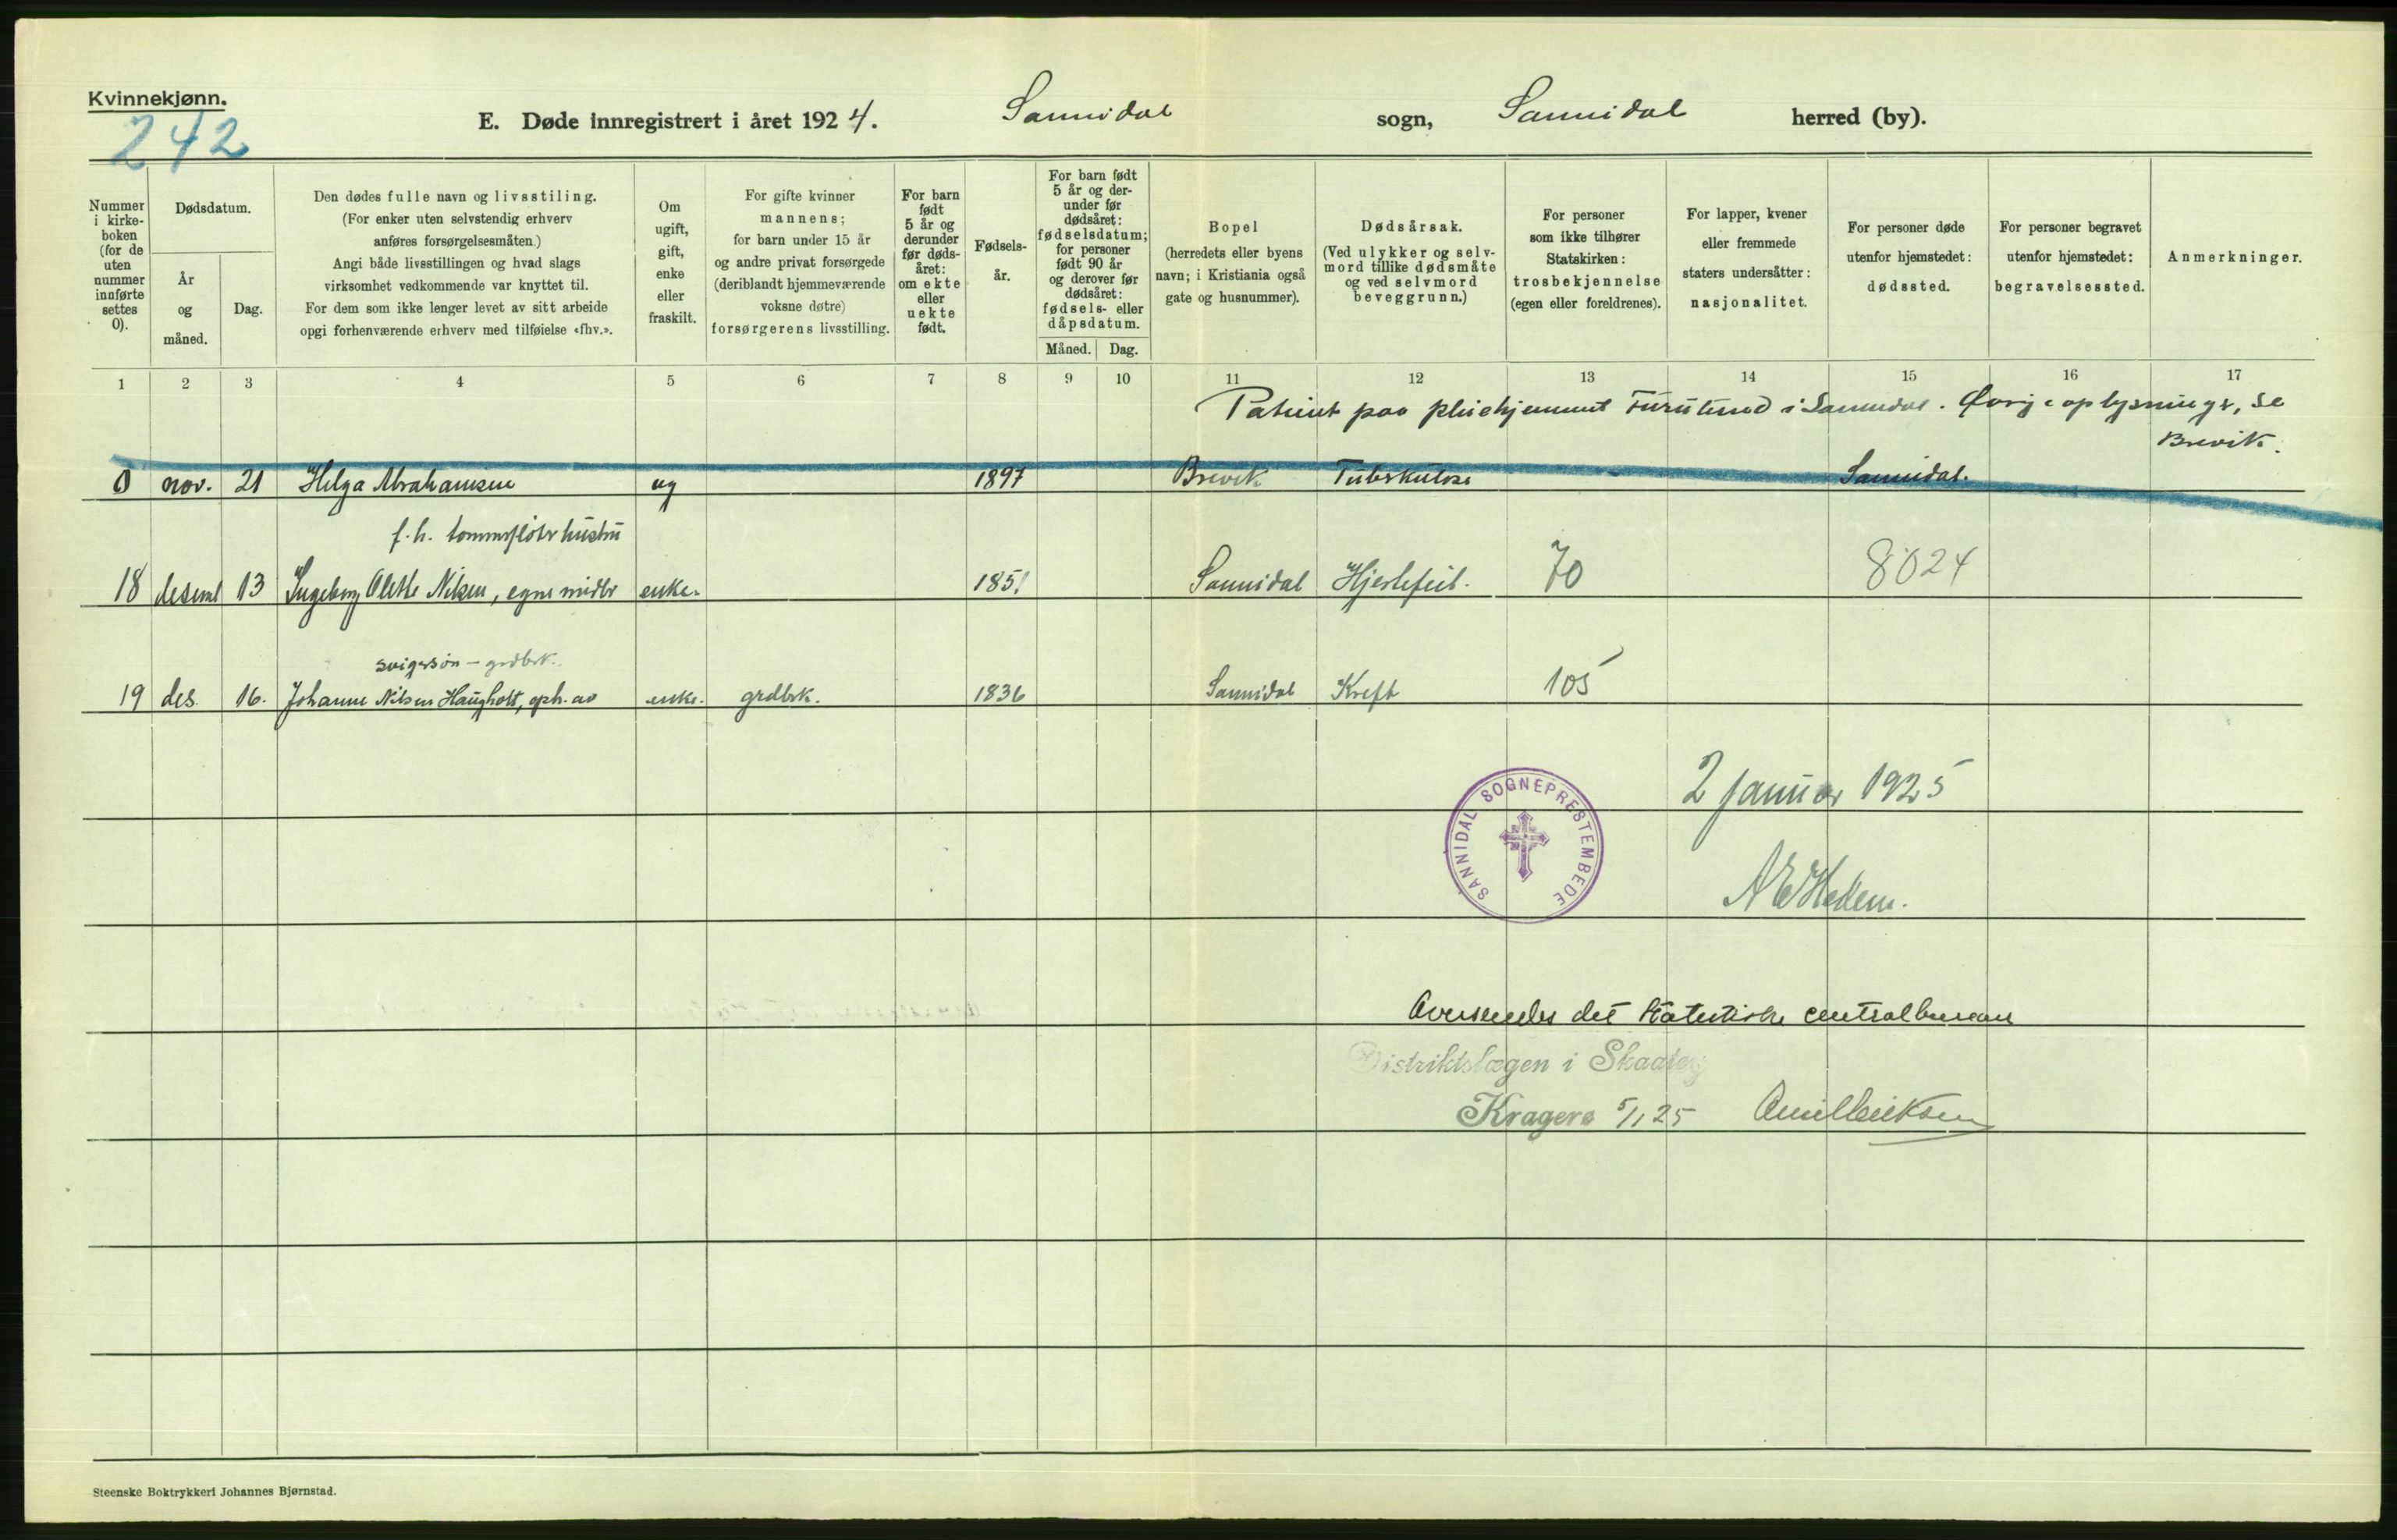 Kvinnekjønn.
242
E. Døde innregistrert i året 1924. Sannidal sogn, Sannidal herred (by).
Nummer i kirke- boken (for de uten nummer innførte settes 0).
Dødsdatum.
År og måned.
Dag.
Den dødes fulle navn og livsstiling.
(For enker uten selvstendig erhverv
anføres forsørgelsesmåten.)
Angi både livsstillingen og hvad slags
virksomhet vedkommende var knyttet til.
For dem som ikke lenger levet av sitt arbeide
opgi forhenværende erhverv med tilføielse «fhv.».
Om ugift, gift, enke eller fraskilt.
For gifte kvinner
mannens;
for barn under 15 år
og andre privat forsørgede
(deriblandt hjemmeværende
voksne døtre)
forsørgerens livsstilling.
For barn født 5 år og derunder før døds- året: om ekte eller uekte født.
Fødsels- år.
For barn født
5 år og der-
under før
dødsåret:
fødselsdatum;
for personer
født 90 år
og derover før
dødsåret:
fødsels- eller
dåpsdatum.
Måned. Dag.
Bopel
(herredets eller byens
navn; i Kristiania også
gate og husnummer).
Dødsårsak.
(Ved ulykker og selv-
mord tillike dødsmåte
og ved selvmord
beveggrunn.)
For personer
som ikke tilhører
Statskirken:
trosbekjennelse
(egen eller foreldrenes).
For lapper, kvener
eller fremmede
staters undersåtter:
nasjonalitet.
For personer døde
utenfor hjemstedet:
dødssted.
For personer begravet
utenfor hjemstedet:
begravelsessted.
Anmerkninger.
1 2 3 4 5 6 7 8 9 10 11 12 13 14 15 16 17
Patient paa pleiehjemmet Furulund i Sannidal. Øvrige oplysninger, se
Brevik.
0 nov. 21 Helga Abrahamsen ug 1897 Brevik Tuberkulose Sannidal.
f.h. tømmerfløter hustru
18 desemb 13 Ingeborg Olette Nilsen, egne midler enke. 1851 Sannidal Hjertefeil. 70 8024
svigersøn – grdbrk.
19 des. 16. Johanne Nilsen Haugholt, oph. av enke. grdbrk. 1836 Sannidal Kreft 105
SANNIDAL SOGNEPRESTEMBEDE
2 januar 1925
Oversendes det statistiske centralbureau
Distriktslægen i Skaatøy
Kragerø 5/1 25
Steenske Boktrykkeri Johannes Bjørnstad.